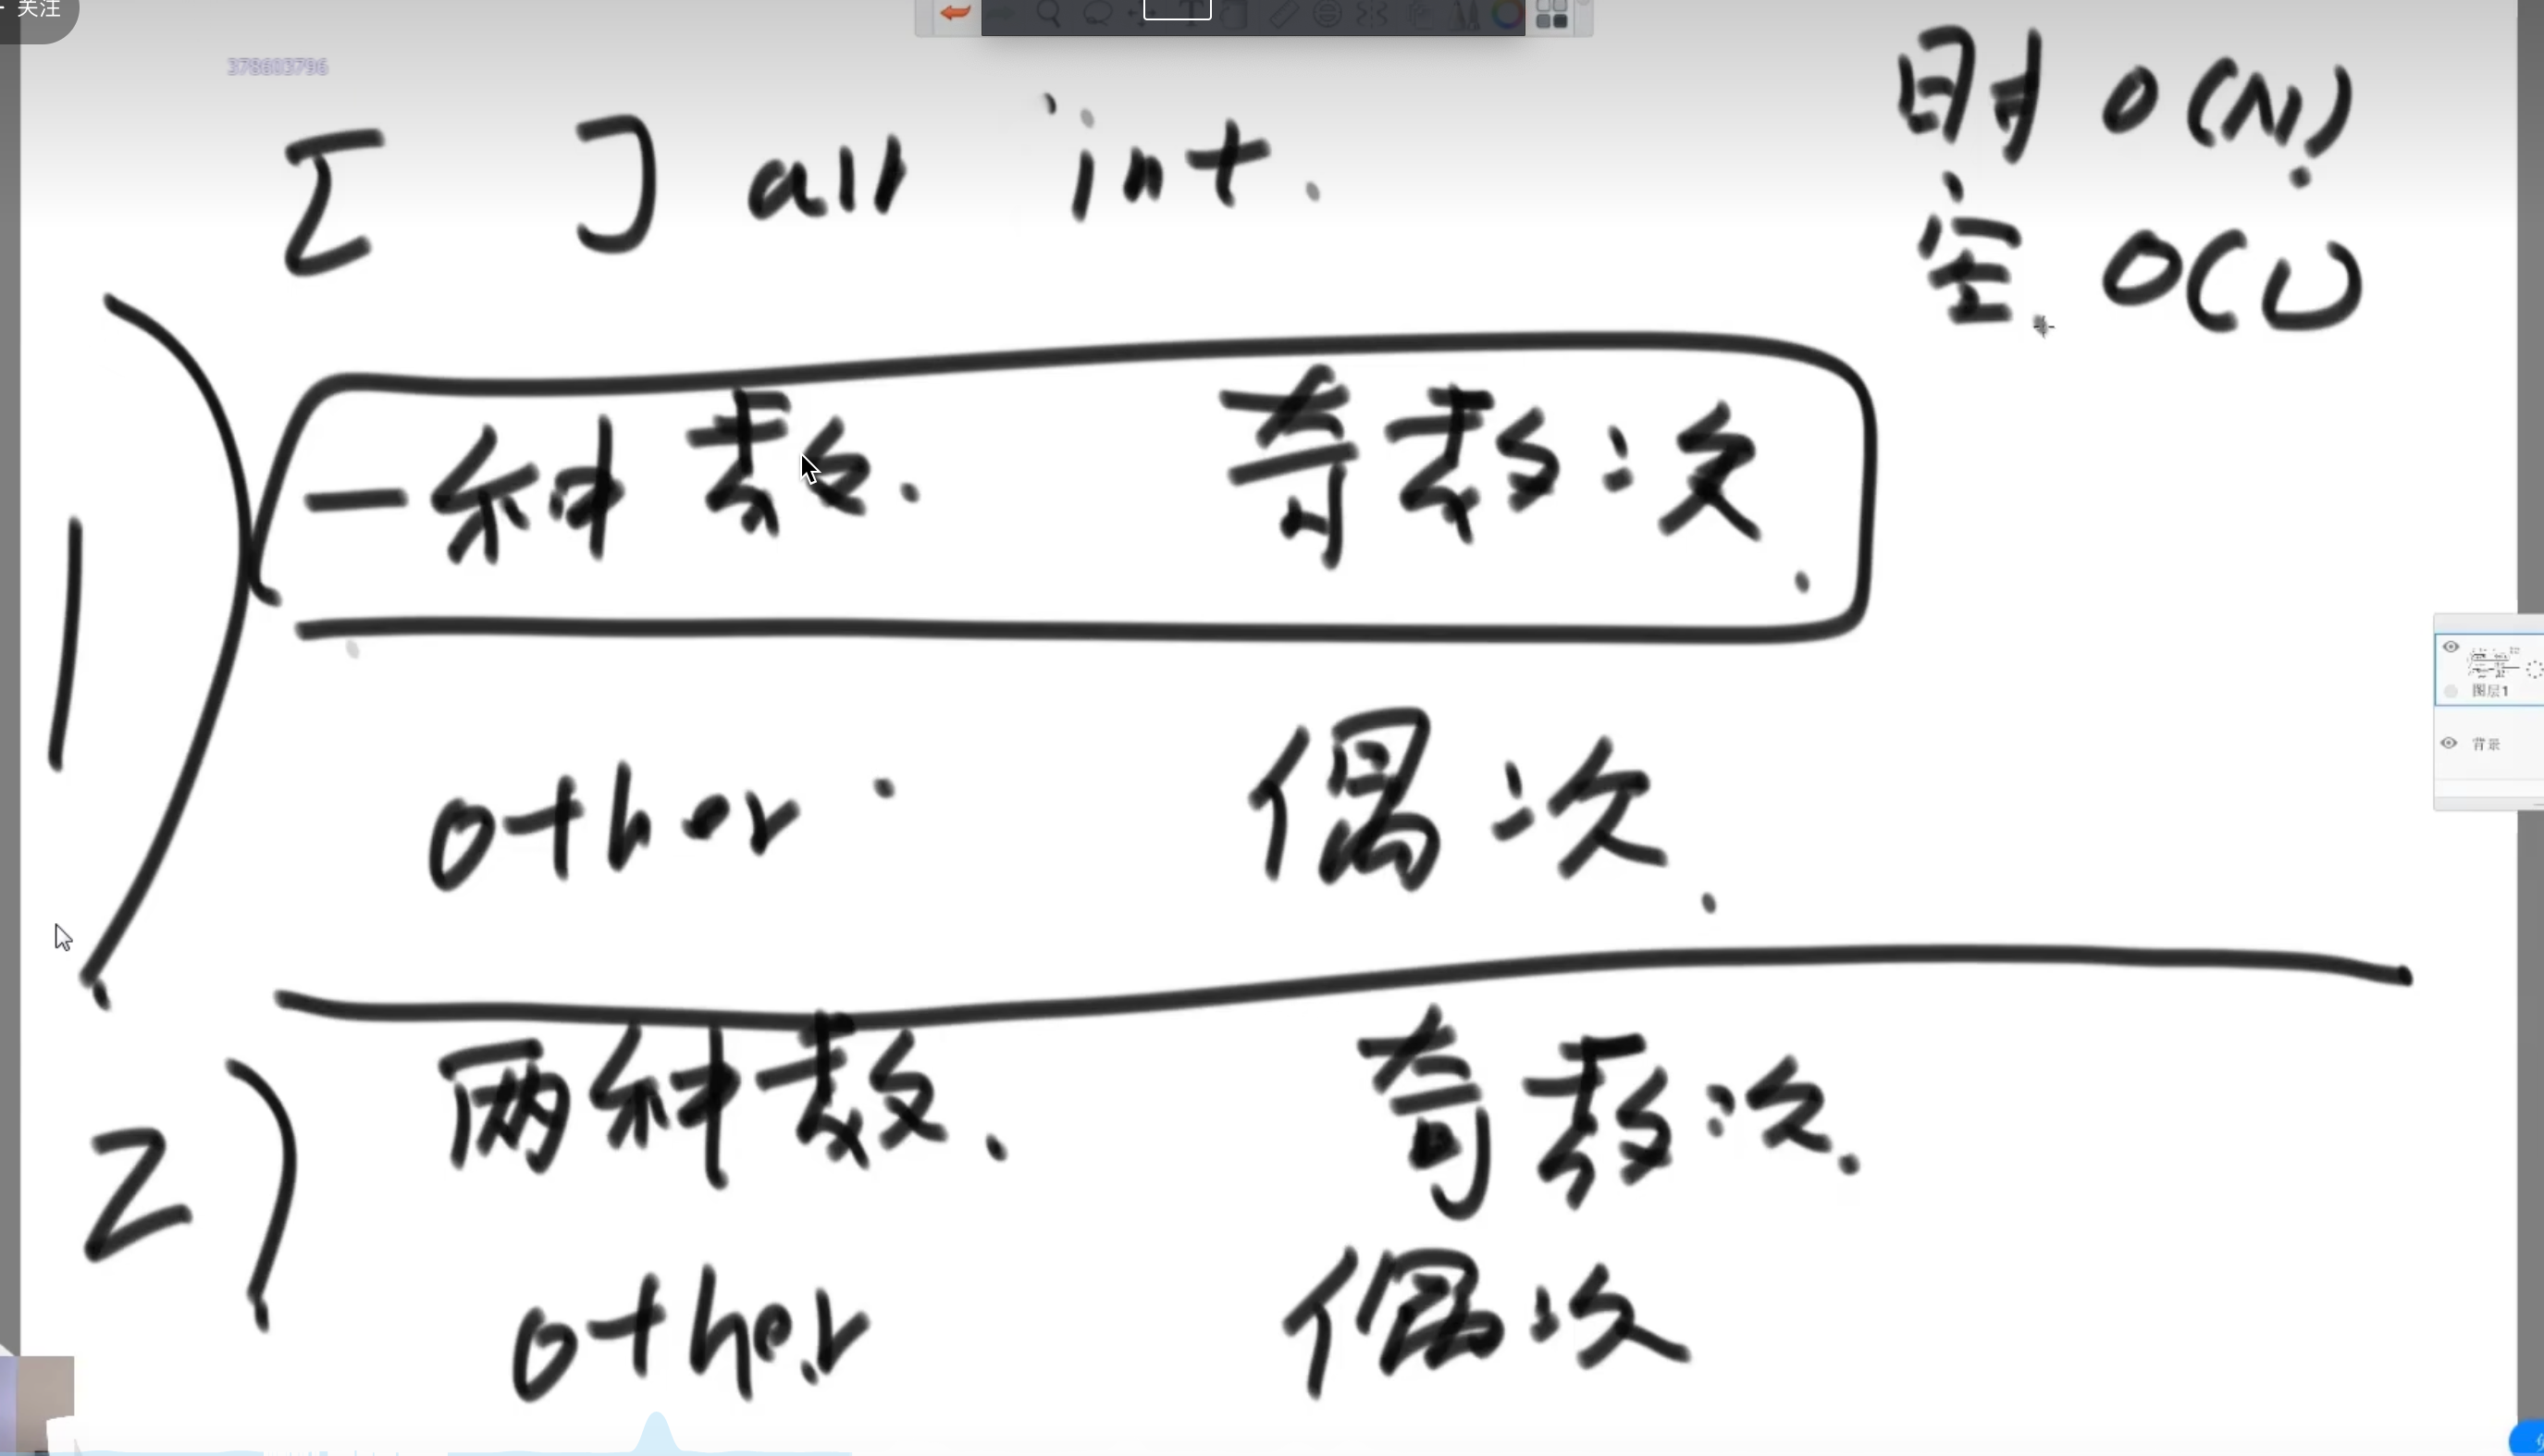 关注
378603796
[ ] all int.
时 O(N)
空 O(1)
1) 一种数. 奇数次.
other 偶次.
2) 两种数. 奇数次.
other 偶次
图层1
背景